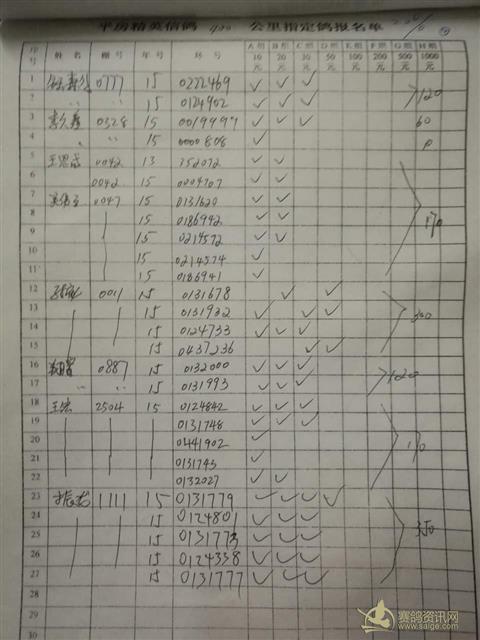 平房精英信鸽 400 公里指定鸽报名单
序号 姓名 棚号 年号 环号 A组10元 B组20元 C组30元 D组50元 E组100元 F组200元 G组500元 H组1000元
1 0777 15 0222469 ✓ ✓ ✓
2 〃 〃 15 0124902 ✓ ✓ ✓ 120
3 0328 15 0019997 ✓ ✓ ✓ 60
4 〃 〃 15 0000808 ✓
5 0042 13 752072 ✓ ✓
6 0042 15 0004707 ✓ ✓
7 0047 15 0131620 ✓ ✓
8 15 0186942 ✓ ✓ 170
9 15 0214572 ✓ ✓
10 15 0214574 ✓
11 15 0186941 ✓
12 0011 15 0131678 ✓ ✓
13 15 0131932 ✓ ✓ ✓
14 15 0124733 ✓ ✓ ✓ 300
15 15 0437236 ✓ ✓
16 0887 15 0132000 ✓ ✓ ✓
17 〃 〃 15 0131993 ✓ ✓ ✓ 120
18 2504 15 0124842 ✓ ✓ ✓
19 0131748 ✓ ✓ ✓
20 0441902 ✓ 170
21 0131743 ✓
22 0132027 ✓ ✓
23 1111 15 0131779 ✓ ✓ ✓ ✓
24 15 0124801 ✓ ✓ ✓
25 15 0131773 ✓ ✓ ✓ 350
26 15 0124338 ✓ ✓ ✓
27 15 0131777 ✓ ✓ ✓
28
29
30
赛鸽资讯网
www.saige.com